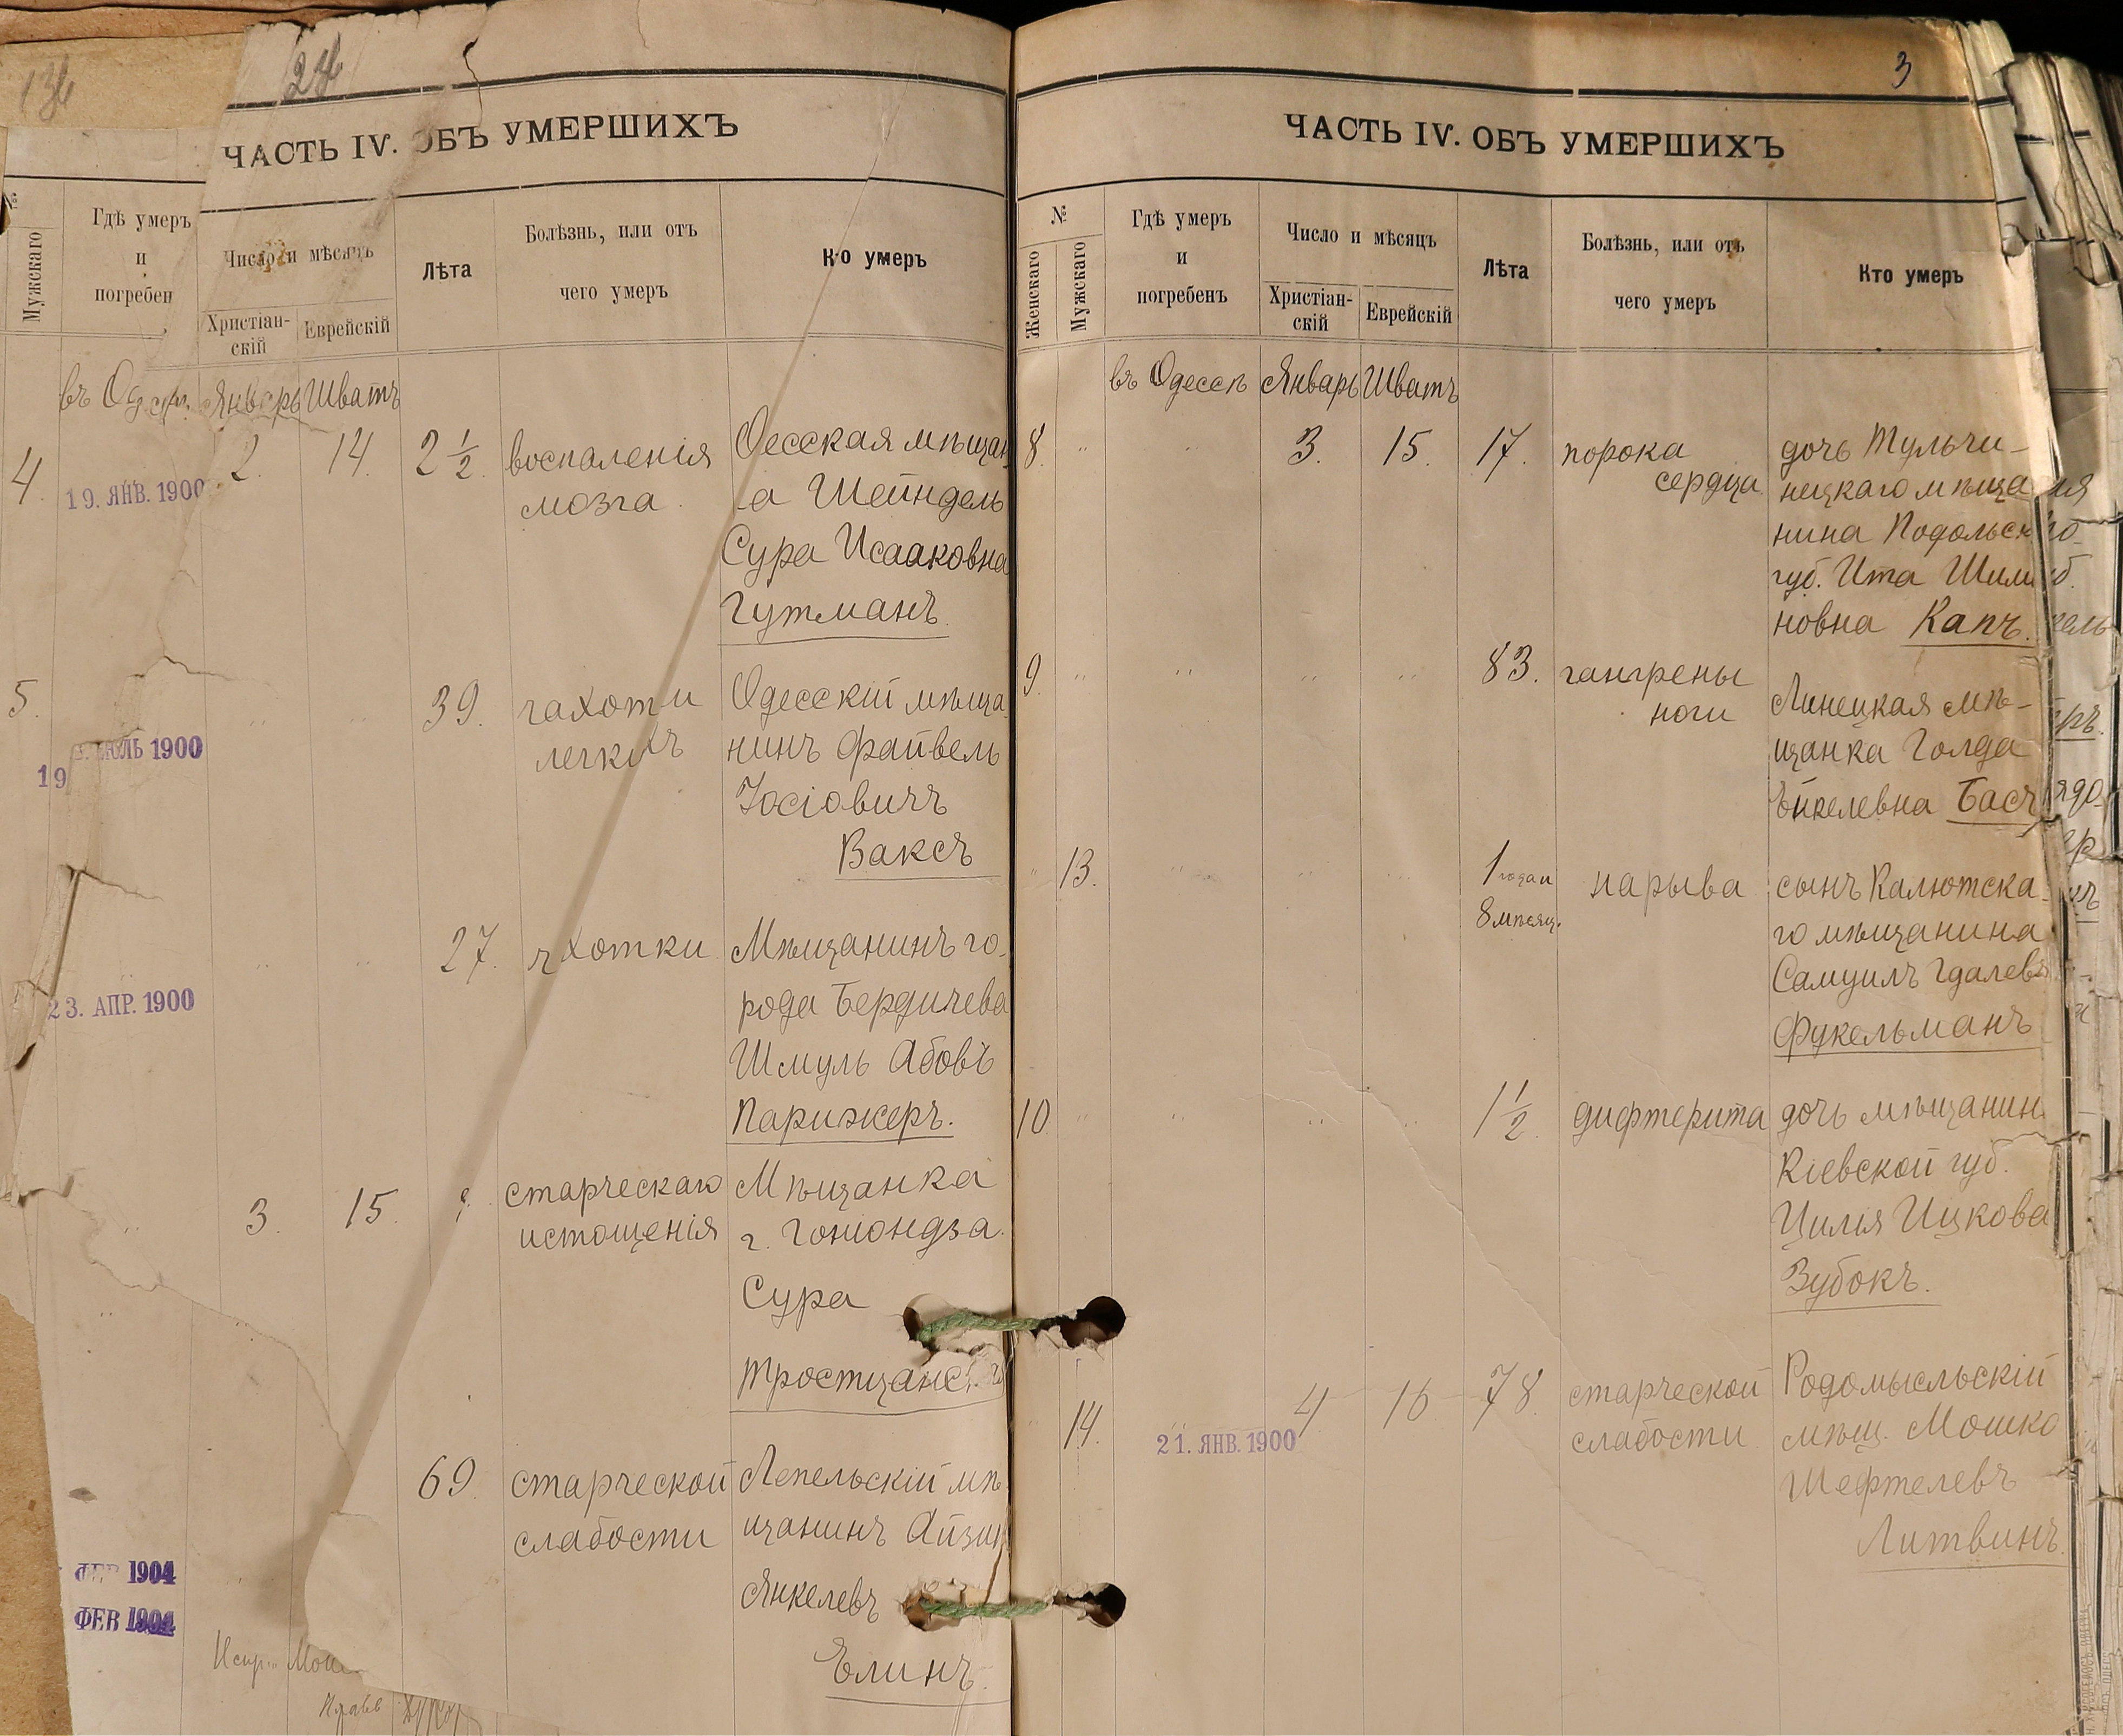 136
24
ЧАСТЬ IV. ОБЪ УМЕРШИХЪ
№
Мужскаго
Гдѣ умеръ
и
погребен
Число и мѣсяцъ
Христіан-
скій
Еврейскій
Лѣта
Болѣзнь, или отъ
чего умеръ
Кто умеръ
въ Одессѣ Январь Шватъ
4.
19. ЯНВ. 1900
2. 14. 2 1/2.
воспаленія
мозга
Оесская мѣщан
а Шейндель
Сура Исааковна
Гутманъ.
5.
19 ЮЛЬ 1900
" " 39.
чахотки
легкихъ
Одесскій мѣща
нинъ Файвель
Іосіовичъ
Ваксъ
23. АПР. 1900
" " 27.
чахотки
Мѣщанинъ го
рода Бердичева
Шмуль Абовъ
Парижеръ.
" 3. 15.
старческаго
истощенія
Мѣщанка
г. Гоніондза
Сура
Тростянс
69.
старческой
слабости
Лепельскій мѣ
щанинъ Айзик
Янкелевъ
Элинъ.
ФЕВ 1904
ФЕВ 1904
3
ЧАСТЬ IV. ОБЪ УМЕРШИХЪ
№
Женскаго
Мужскаго
Гдѣ умеръ
и
погребенъ
Число и мѣсяцъ
Христіан-
скій
Еврейскій
Лѣта
Болѣзнь, или отъ
чего умеръ
Кто умеръ
въ Одессѣ Январь Шватъ
8. " " 3. 15. 17.
порока
сердца
дочь Тульчи-
нецкаго мѣща
нина Подольск
губ. Ита Шим
новна Капъ.
9. " " " " 83.
гангрены
ноги
Линецкая мѣ-
щанка Голда
Энкелевна Басъ
" 13. " " " 1 года и
8 мѣсяц.
нарыва
сынъ Калютска
го мѣщанина
Самуилъ Гдалевъ
Фукельманъ
10 " " " " 1 1/2.
дифтерита
дочь мѣщанин
Кіевской губ.
Цилія Ицкова
Зубокъ.
14.
21. ЯНВ. 1900
4 16 78
старческой
слабости
Родомысльскій
мѣщ. Мошко
Шефтелевъ
Литвинъ.